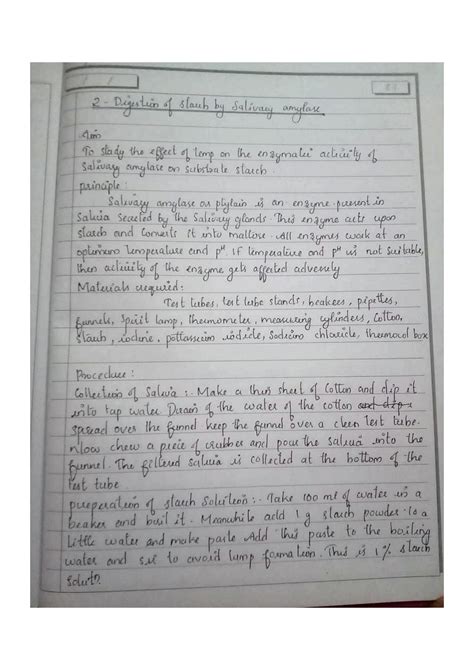 2 - Digestion of starch by Salivary amylase
Aim
To study the effect of temp on the enzymatic activity of
Salivary amylase on substrate starch.
principle:
Salivary amylase or ptylain is an enzyme present in
Saluia secreted by the Salivary glands. This enzyme acts upon
starch and Converts it into maltose. All enzymes work at an
optimum temperature and pH. If temperature and pH is not suitable,
then activity of the enzyme gets affected adversely
Materials required:
Test tubes, test tube stands, beakers, pipettes,
funnels, spirit lamp, thermometer, measuring cylinders, Cotton,
starch, iodine, pottassium iodide, Sodium chloride, thermocol box
Procedure:
Collection of Saliva :- Make a thin sheet of Cotton and dip it
into tap water Drain of the water of the cotton and dip
spread over the funnel keep the funnel over a clean test tube.
Now chew a piece of rubber and pour the saliva into the
funnel. The filtered saliva is collected at the bottom of the
test tube
preperation of starch Solution :- Take 100 ml of water in a
beaker and boil it. Meanwhile add 1 g starch powder to a
little water and make paste Add this paste to the boiling
water and stir to avoid lump formation. This is 1% starch